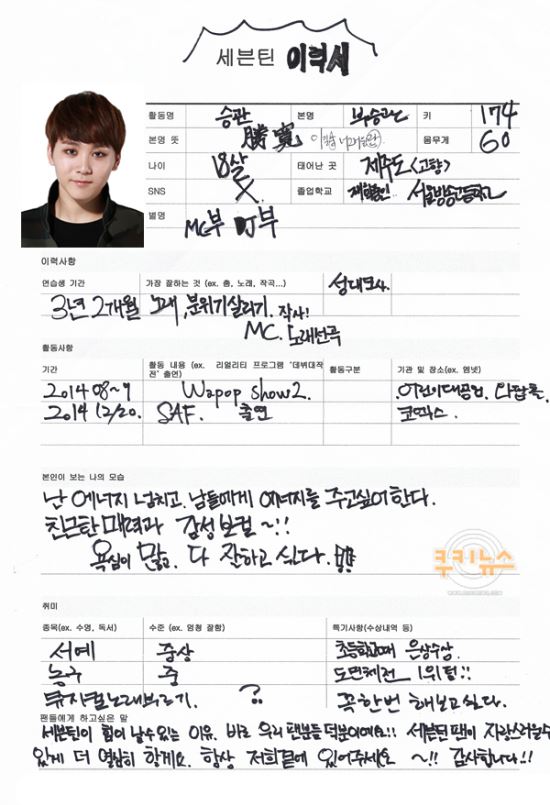 세븐틴 이력서
활동명 승관 본명 부승관 키 174
본명 뜻 勝寬 이길승 너그러울관 몸무게 60
나이 18살 태어난 곳 제주도<고향>
SNS X 졸업학교 재학중인.. 서울방송고등학교
별명 MC부 DJ부
이력사항
연습생 기간 가장 잘하는 것 (ex. 춤, 노래, 작곡...) 성대모사.
3년 2개월 노래, 분위기살리기. 작사!
MC. 노래선곡
활동사항
기간 활동 내용 (ex. 리얼리티 프로그램 '데뷔대작전' 출연) 활동구분 기관 및 장소(ex. 엠넷)
2014 08~9 Wapop show 2. 어린이대공원. 와팝홀.
2014 12/20. SAF. 출연 코엑스.
본인이 보는 나의 모습
난 에너지 넘치고. 남들에게 에너지를 주고싶어 한다.
친근한 매력과 감성보컬 ~!!
욕심이 많고. 다 잘하고 싶다.
쿠키뉴스
취미
종목(ex. 수영, 독서) 수준 (ex. 엄청 잘함) 특기사항(수상내역 등)
서예 중상 초등학교때 은상수상
농구 중 도면체전 1위팀!!
뮤지컬노래부르기. ? 꼭한번 해보고싶다.
팬들에게 하고싶은 말
세븐틴이 힘이 날수있는 이유. 바로 우리 팬분들 덕분이에요!! 세븐틴 팬이 자랑스러울수
있게 더 열심히 할게요. 항상 저희곁에 있어주세요 ~!! 감사합니다!!